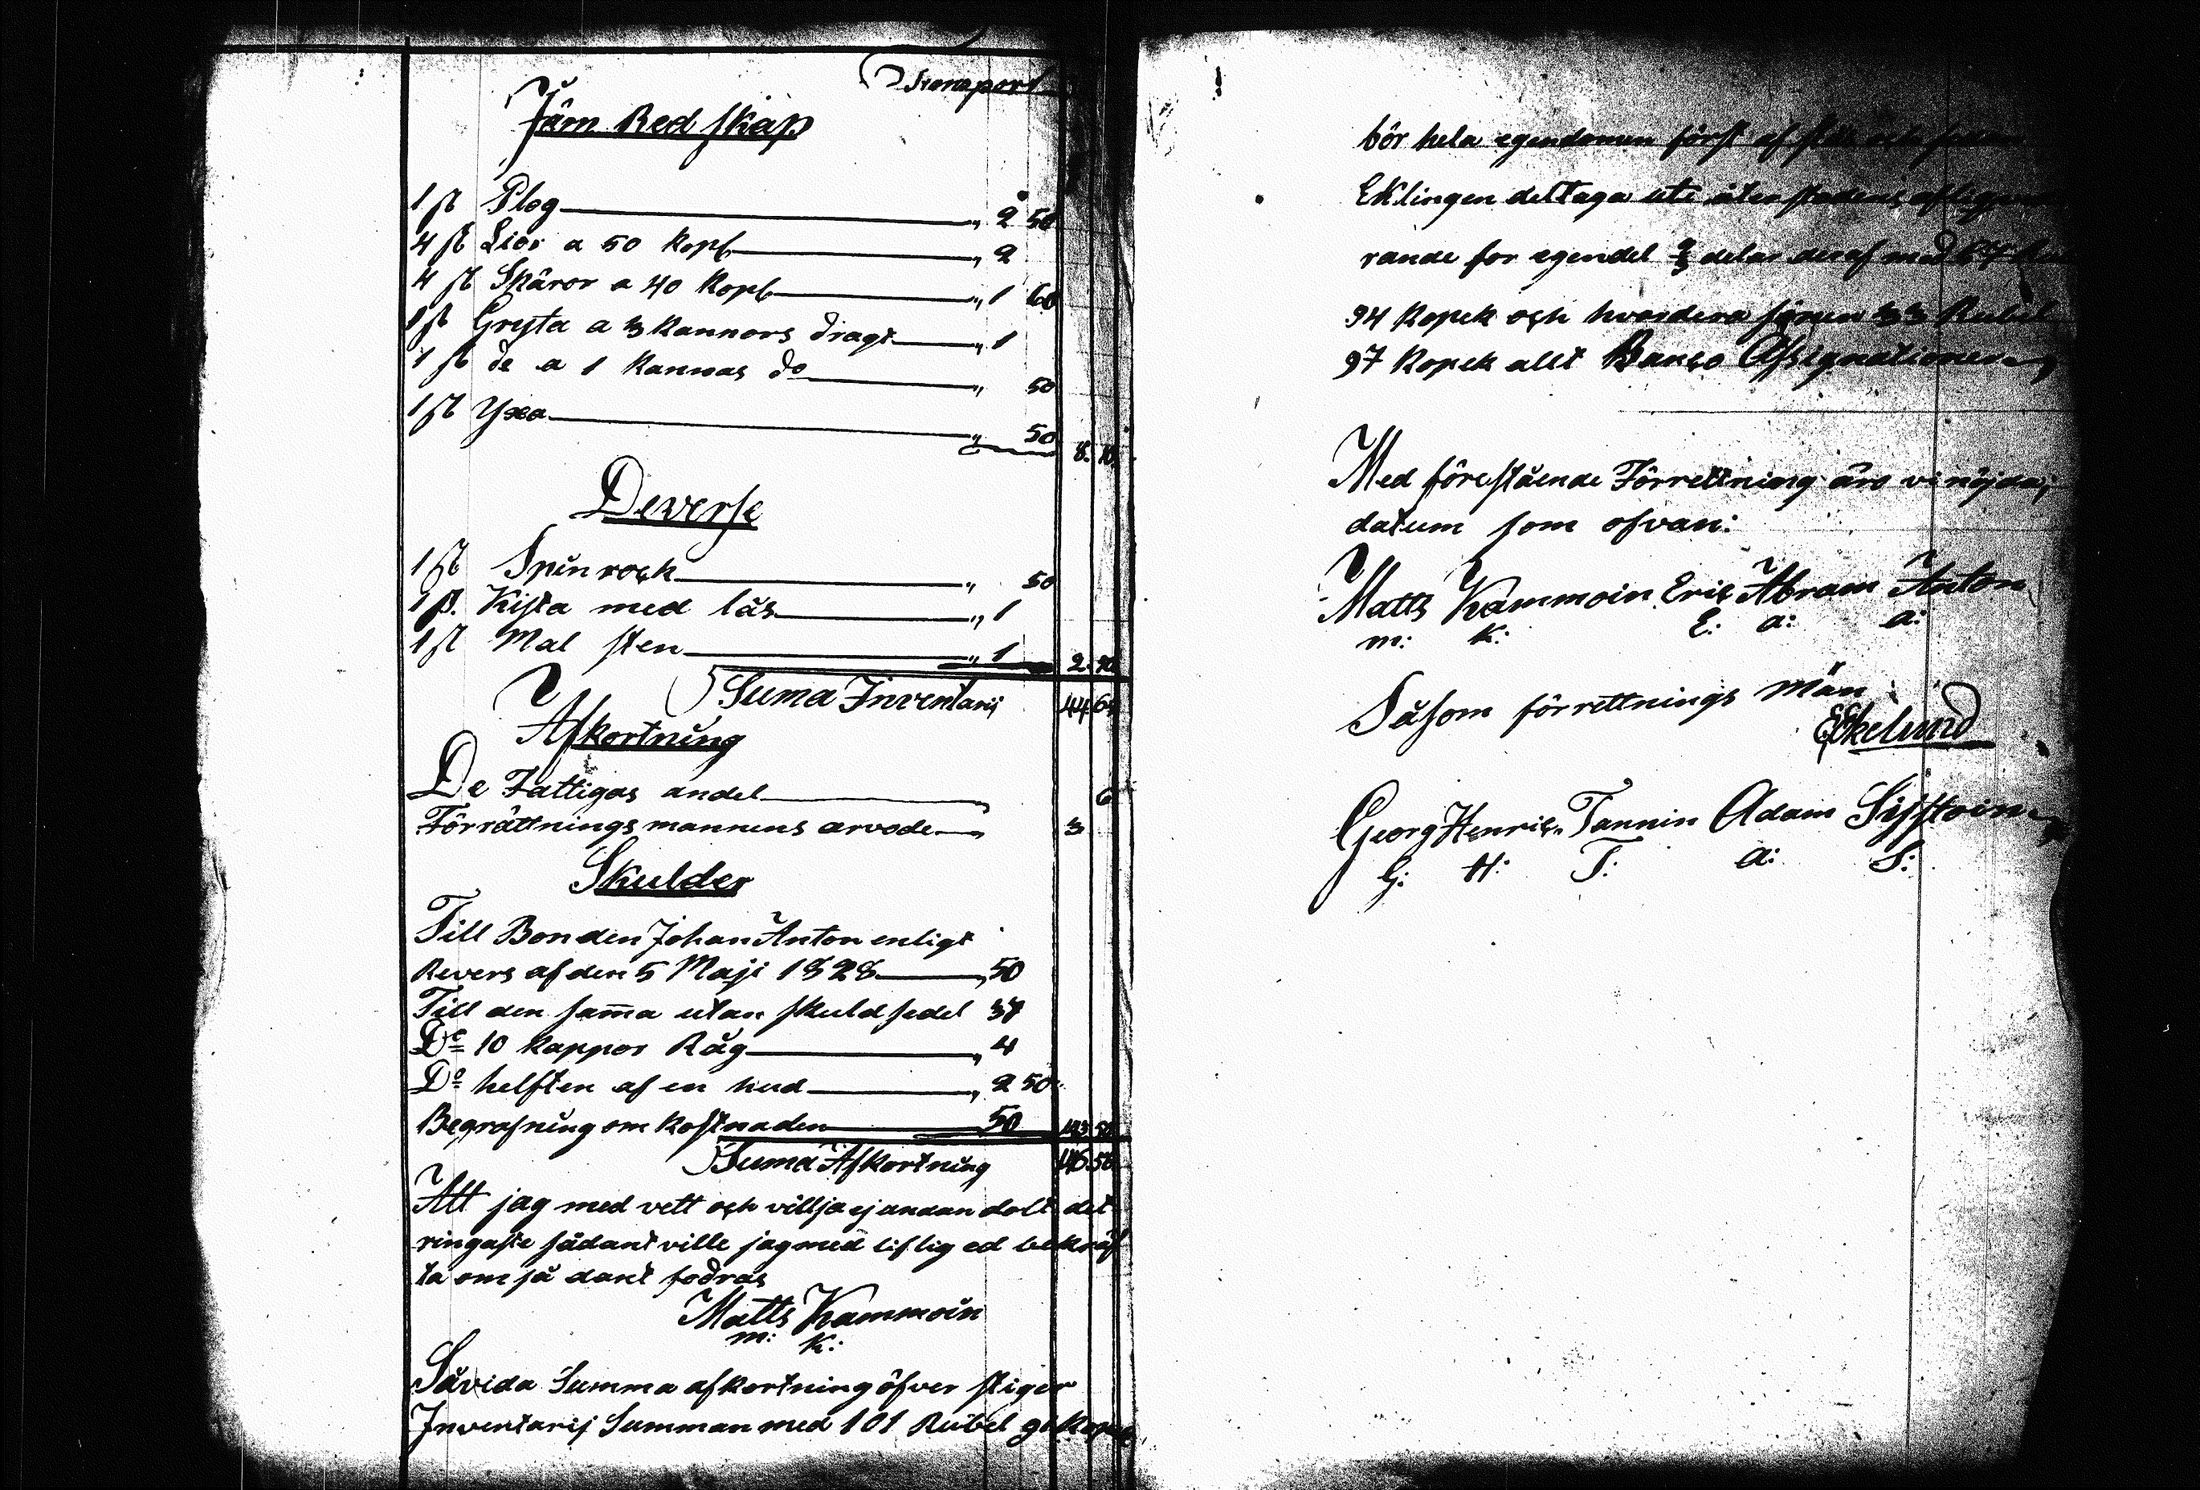 Transport
Järn Redskap
1 st Plog „ 2 50
4 st Lior a 50 Kopk „ 2
4 st Skäror a 40 Kopk „ 1 60
1 st Gryta a 3 Kannors dragt „ 1
1 st do a 1 Kannas do „ 50
1 st Yxa „ 50 8. 10
Deverse
1 st Spinrock „ 50
1 st. Kista med lås „ 1
1 st Mal sten „ 1 2. 50
Suma Inventarij 44
Afkortning
De Fattigas andel 6
Förrättningsmannens arvode 3
Skulder
Till Bonden Johan Anton enligt
Revers af den 5 Maji 1828 „ 50
Till den sam̄a utan skuldsedel 37
Do 10 Kappor Råg „ 4
Do helften af en hud „ 2 50
Begrafning om kostnaden 50 143 50
Suma Afkortning 146. 56
Att jag med vett och villja ej undan dolt det
ringaste sådant ville jag med liflig ed bekräf
ta om så dant fodras
Matts Kammoin
m: K:
Såvida Summa afkortning öfver stiger
Inventarij Summan med 101 Rubel 91 Kopek
bör hela egendomen först af
Eklingen deltaga uti återstadens
rande for egendel 2/3 delar deraf med 67
94 Kopek och hvardera sönen 33 Rubel
97 Kopek allt Banco Assignationer,
Med förestående Förrettning äro vi nöjda,
datum som ofvan:
Matts Kammoin Eric Abram Anton
m: K: E: a: a:
Såsom förrettnings män
Ekelund
Georg Henric Tannin Adam Sisstoin
G: H: T: a: S: